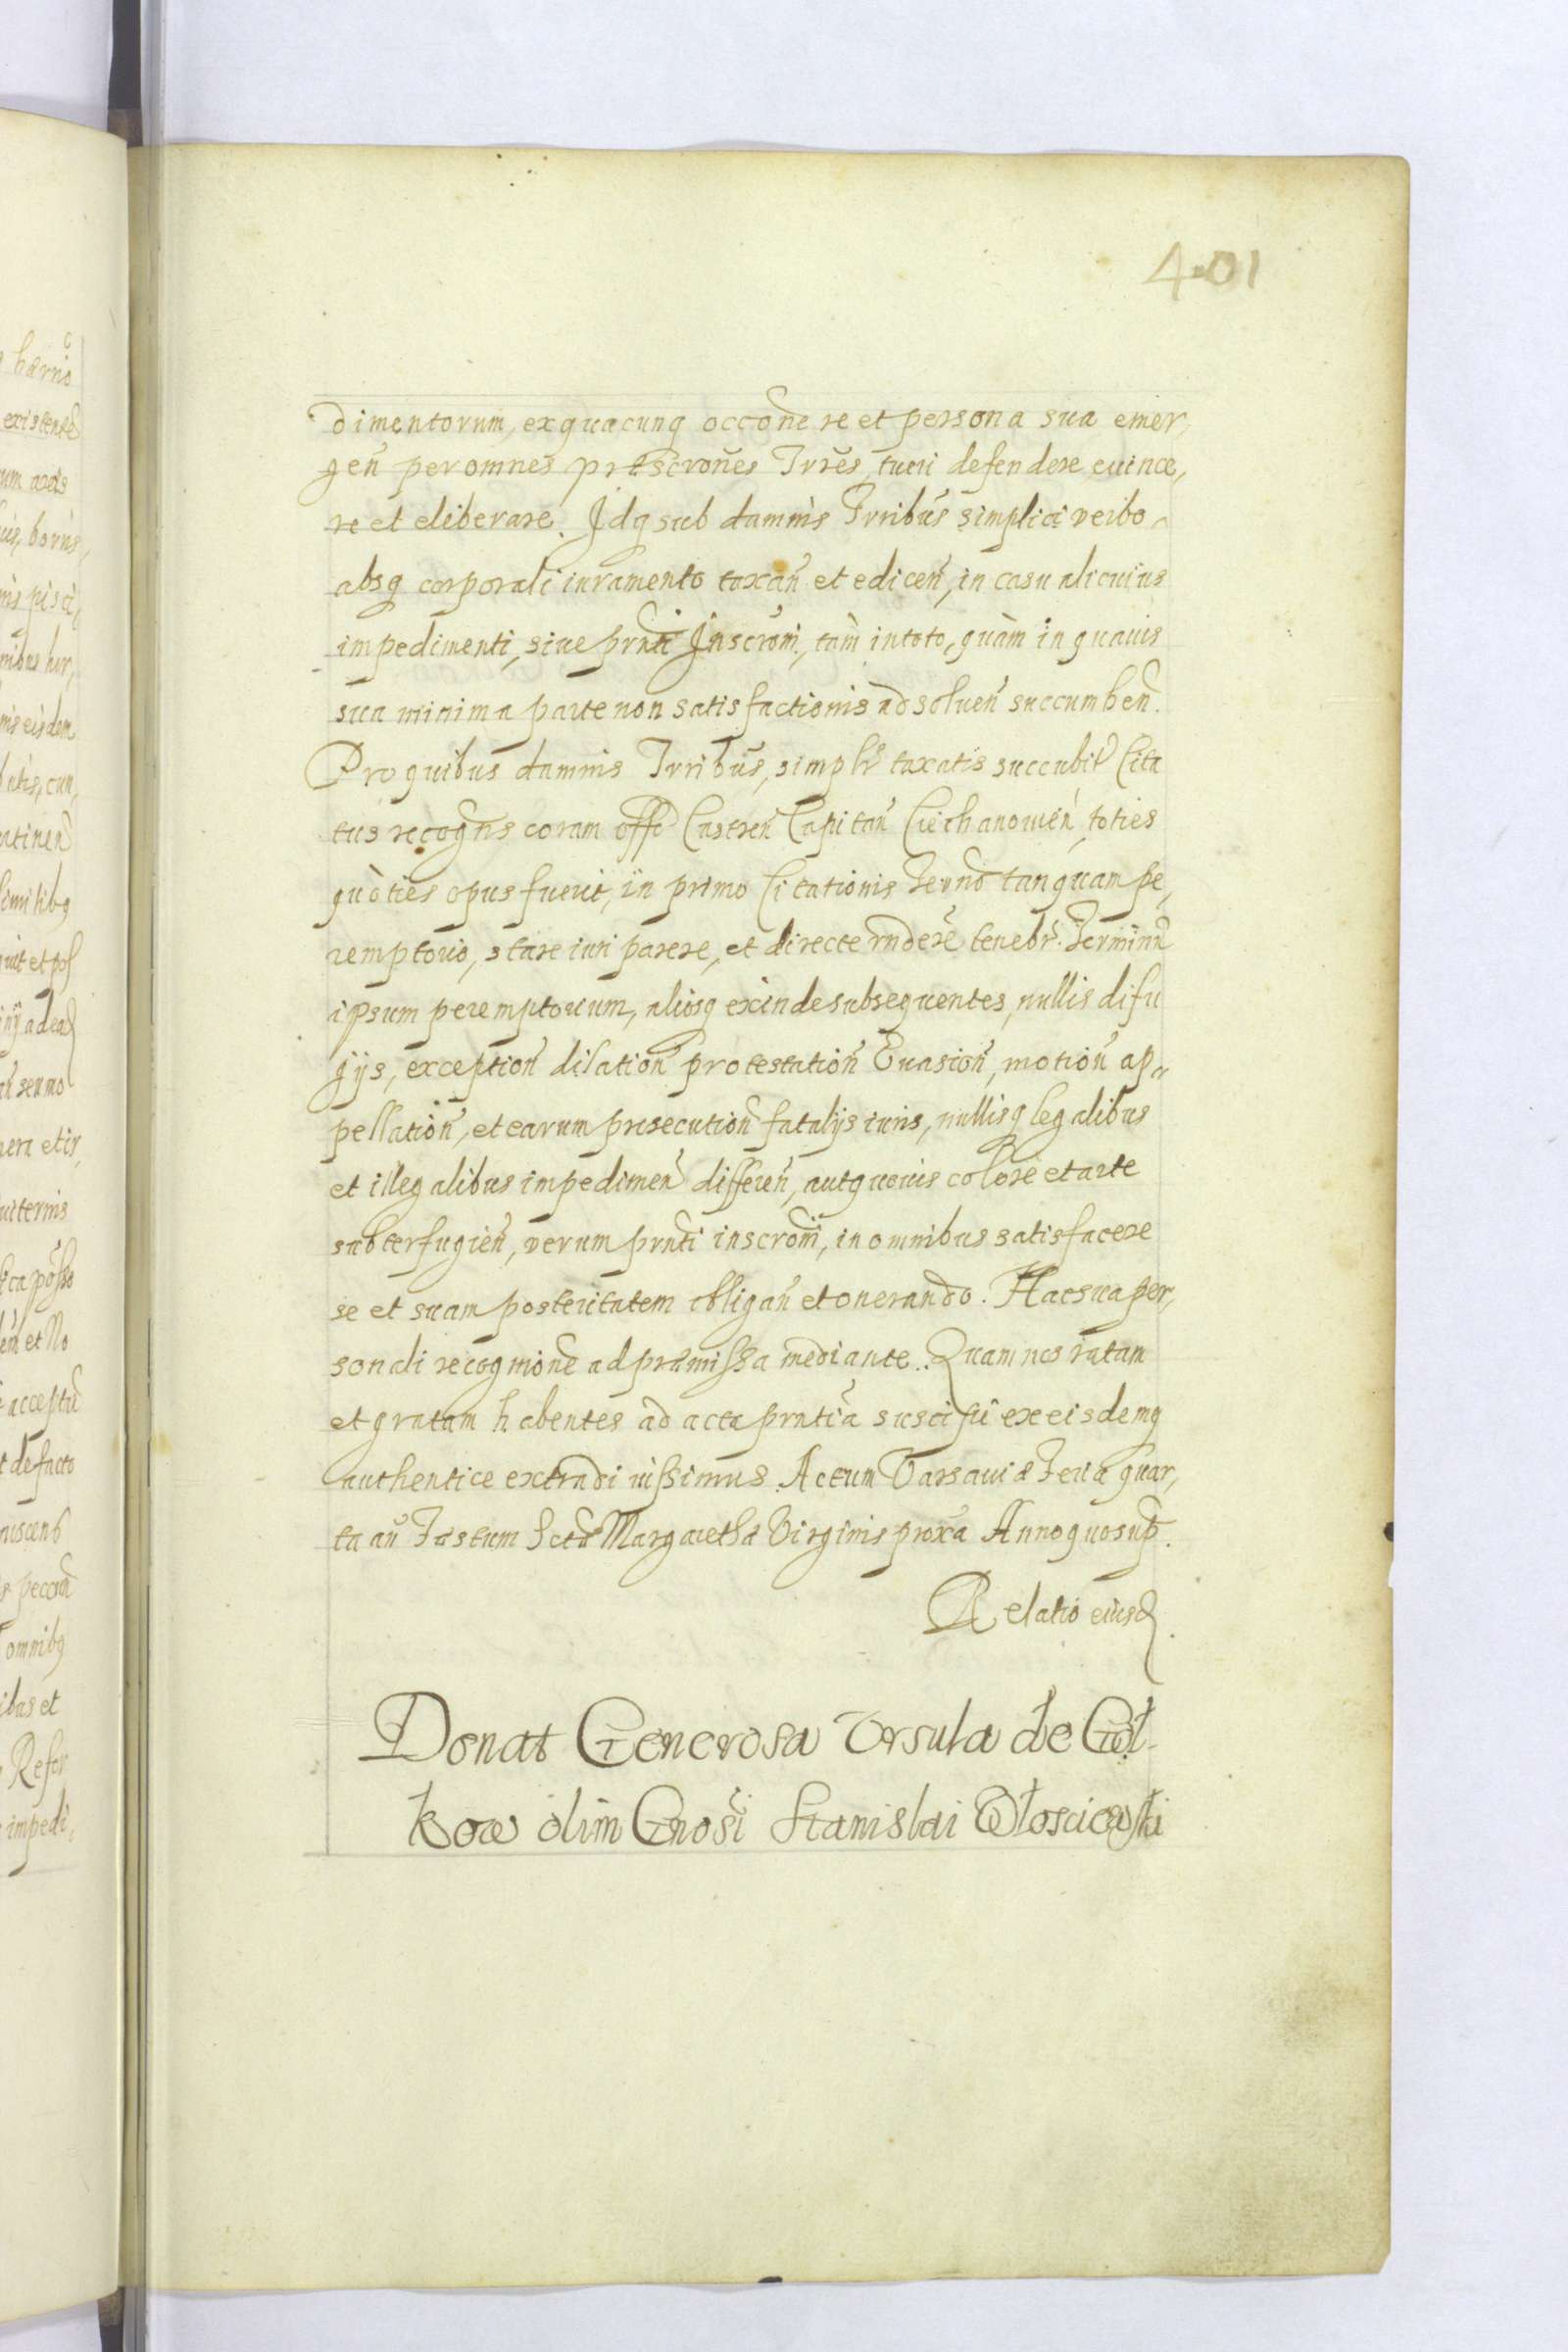 401
dimentorum, ex quacunq occone re et persona sua emer,
gen per omnes præscrones Trres, tueri defendere euince,
re et eliberare. Idq sub damnis Trribus simplici verbo
absq corporali iuramento taxan et edicen, in casu alicuius
impedimenti, siue prnti Inscroni, tam in toto, quàm in quauis
sua minima parte non satisfactionis adsoluen succumben.
Pro quibus damnis Trribus, simplr taxatis succubit Cita
tus recogns coram offo Castren Capitan Ciechanouien, toties
quòties opus fuerit, in primo Citationis Termo tanquam pe,
remptorio, stare iuri parere, et directe rndere tenebr. Terminu
ipsum peremptorium, aliosq exinde subsequentes, nullis difu
gijs, exception dilation protestation Euasion, motion ap
pellation, et earum prosecution fatalijs iuris, nullisq legalibus
et illegalibus impedimen differen, aut quouis colore et arte
subterfugien, verum prnti inscroni, in omnibus satisfacere
se et suam posteritatem obligan et onerando. Hac sua per,
sonali recognione ad præmissa mediante. Quam nos ratam
et gratam habentes ad acta prntia suscipi ex eisdemq
authentice extradi iussimus. Actum Varsauiæ Feria quar,
ta an Festum Sctæ Margarethæ Virginis proxa Anno quo sup.
Relatio eiusd
Donat Generosa Vrsula de Goł
kow olim Gnosi Stanislai Włosciewski